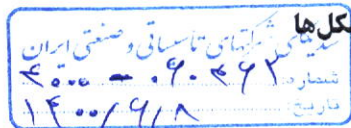 کل‌ها
سندیکای شرکتهای تأسیساتی و صنعتی ایران
شماره:
تاریخ: ۱۴۰۰/۶/۸